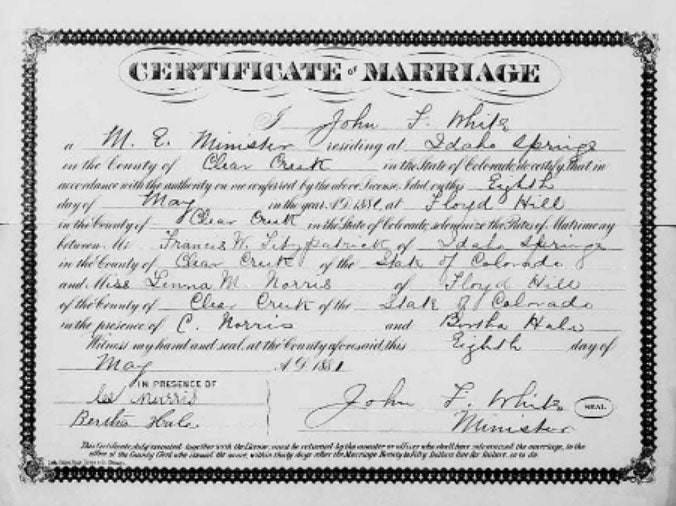 CERTIFICATE of MARRIAGE
I John F. White
a M. E. Minister residing at Idaho Springs
in the County of Clear Creek in the State of Colorado, do certify, that in
accordance with the authority on me conferred by the above License, I did on this Eighth
day of May in the year A.D. 1881, at Floyd Hill
in the County of Clear Creek in the State of Colorado, solemnize the Rites of Matrimony
between Mr Francis W. Fitzpatrick of Idaho Springs
in the County of Clear Creek of the State of Colorado
and Miss Linna M. Norris of Floyd Hill
of the County of Clear Creek of the State of Colorado
in the presence of C. Norris and Bertha Hale
Witness my hand and seal, at the County aforesaid, this Eighth day of
May A.D. 1881
IN PRESENCE OF
Norris
Bertha Hale
John F. White SEAL
Minister
This Certificate, duly executed, together with the License, must be returned by the minister or officer who shall have solemnized the marriage, to the
office of the County Clerk who issued the same, within thirty days after the Marriage. Penalty is Fifty Dollars fine for failure, so to do.